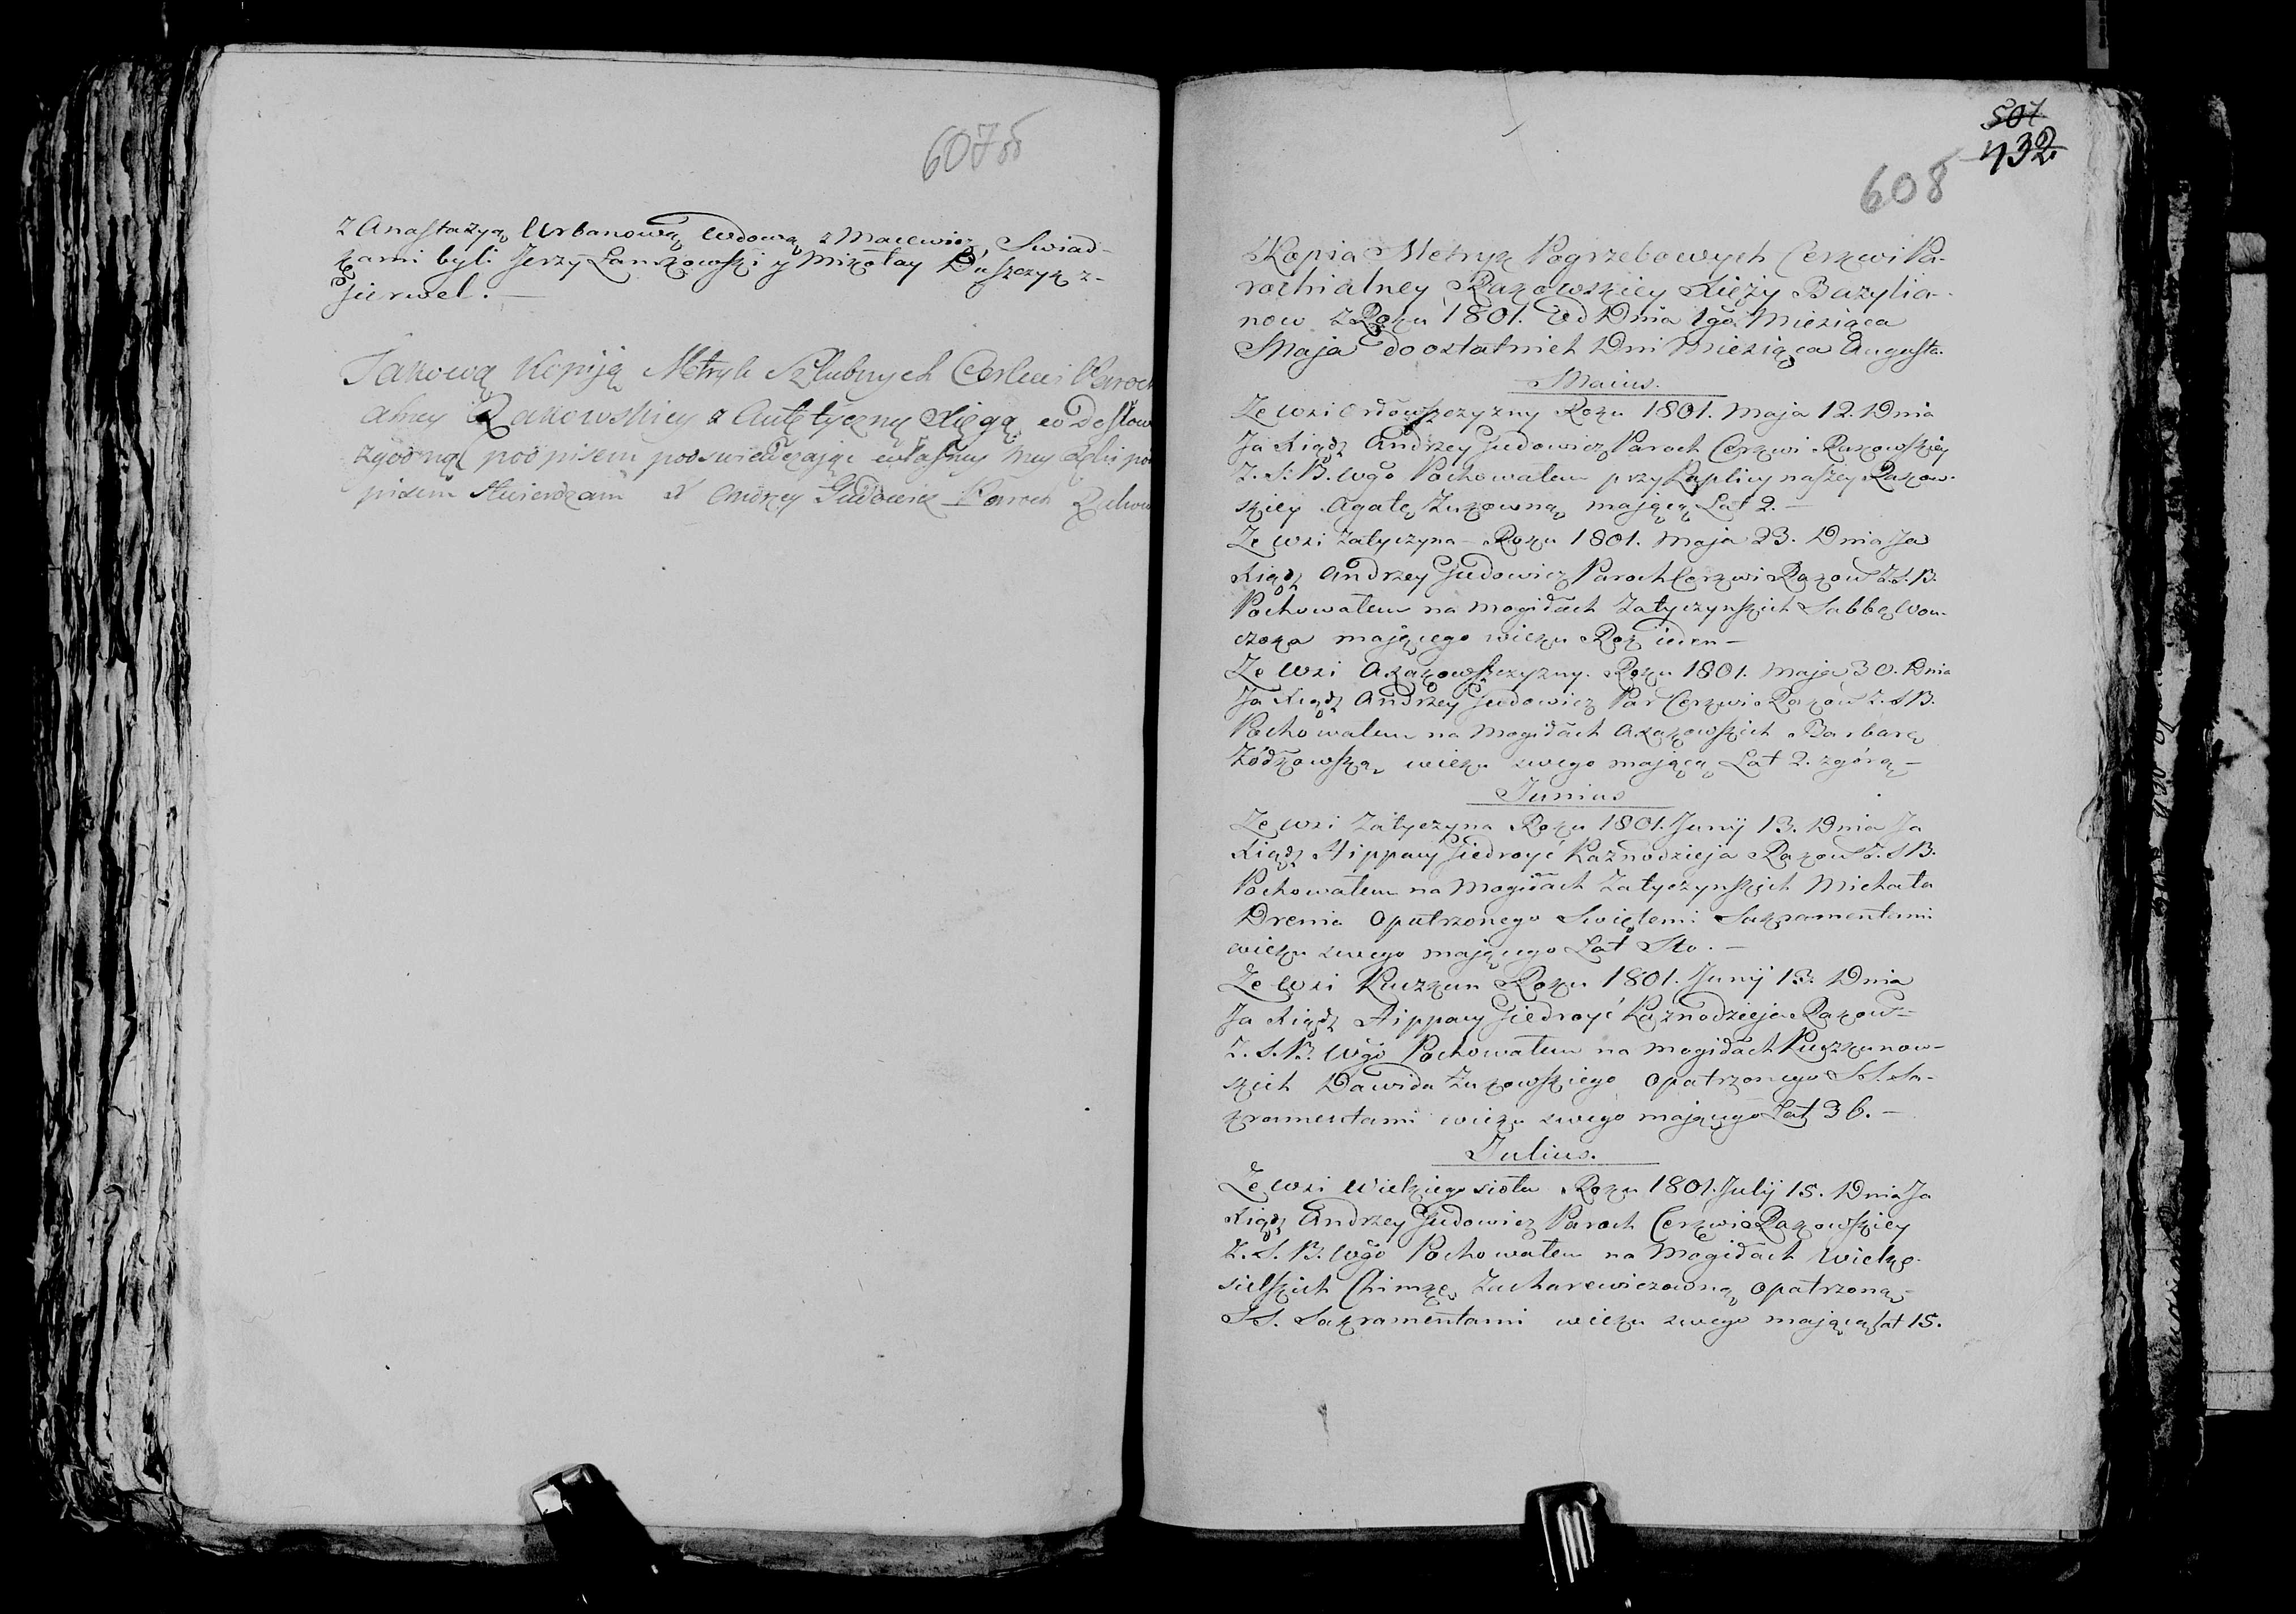 607об
z Anastazyą Urbanową Wdową z Macewicz, Swiad-
kami byli Jerzy Lankowski y Mikołay Duszczyk z-
Gierwel. —
Takową Kopiją Metryk Szlubnych Cerkwi Paroch
alney Rakowskiey z Autętyczną Xięgą co do słow
zgodną podpisem poswiadczając własney mey Ręki pod
pisem stwierdzam X Andrzey Gudowicz Paroch
507
432
608
Kopia Metryk Pogrzebowych Cerkwi Pa-
rochialney Rakowskiey Xięży Bazylia-
now z Roku 1801. Od Dnia 1go Miesiąca
Maja do ostatnich Dni Miesiąca Augusta.
Maius.
Ze wsi Roku 1801. Maja 12. Dnia
Ja Xiądz Andrzey Gudowicz Paroch Cerkwi Rakowskiey
Z. S. B. Wgo Pochowałem przy Kaplicy naszey Rakow-
skiey Agatę Zukowną mającą Lat 2. —
Ze wsi Zatyczyna Roku 1801. Maja 23. Dnia Ja
Xiądz Andrzey Gudowicz Paroch Cerkwi Rakow Z.S.B.
Pochowałem na Mogiłach Zatyczynskich Sabbę Won-
czoka mającego wieku Rok ieden —
Ze wsi Axakowszczyzny. Roku 1801. Maja 30. Dnia
Ja Xiądz Andrzey Gudowicz Par Cerkwi Rakow Z. S B.
Pochowałem na Mogiłach Axakowskich Barbarę
Zódkowską wieku swego mającą Lat 2. zgórą —
Junius
Ze wsi Zatyczyna Roku 1801. Junij 13. Dnia Ja
Xiądz Hippacy Giedroyć Kaznodzieja Rakow Z. S B.
Pochowałem na Mogiłach Zatyczynskich Michała
Drenia Opatrzonego Swiętemi Sakramentami
wieku swego mającego Lat Sto. —
Ze wsi Kuczkun Roku 1801. Junij 13. Dnia
Ja Xiądz Hippacy Giedroyć Kaznodzieja Rakow-
Z. S. B. Wgo Pochowałem na Mogiłach Kuczkunow-
skich Dawida Zukowskiego Opatrzonego S S. Sa-
kramentami wieku swego mającego Lat 36. —
Julius.
Ze wsi Wielkiego sioła Roku 1801. Julij 15. Dnia Ja
Xiądz Andrzey Gudowicz Paroch Cerkwi Rakowskiey
Z. S. B. Wgo Pochowałem na Mogiłach Wielko-
sielskich Chimkę Zacharewiczowną Opatrzoną
S S. Sakramentami wieku swego mającą Lat 15.